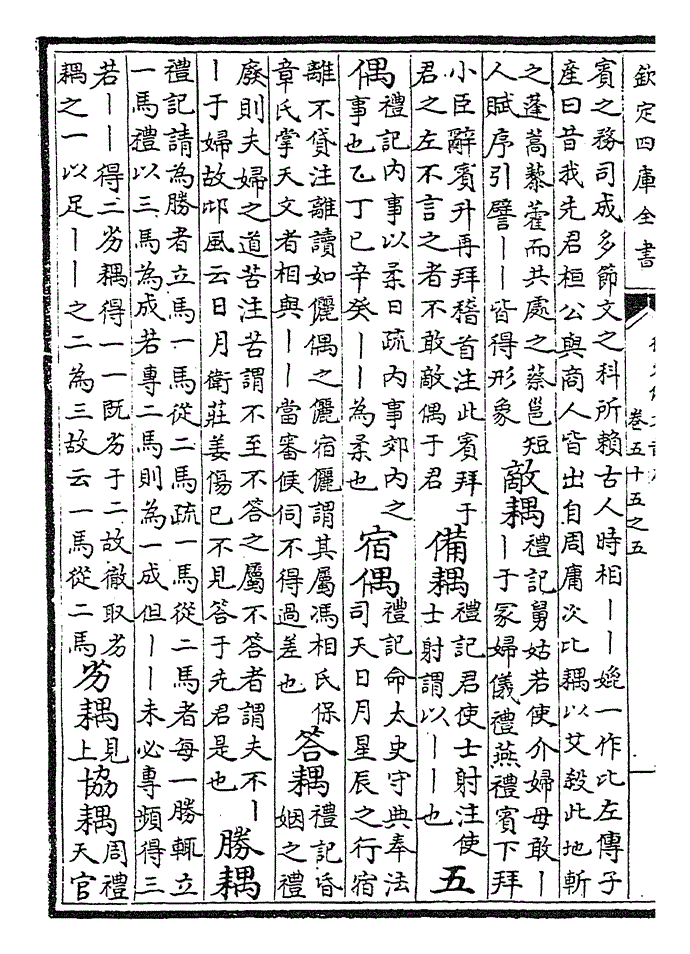 欽定四庫全書
卷五十五之五
賓之務司成多節文之科所賴古人時相——娩一作比左傳子
產曰昔我先君桓公與商人皆出自周庸次比耦以艾殺此地斬
之蓬蒿藜藿而共處之蔡邕短
人賦序引譬——皆得形象
敵耦
禮記舅姑若使介婦母敢—
—于冢婦儀禮燕禮賓下拜
小臣辭賓升再拜稽首注此賓拜于
君之左不言之者不敢敵偶于君
備耦
禮記君使士射注使
士射謂以——也
五
偶
禮記內事以柔日疏內事郊內之
事也乙丁已辛癸——為柔也
宿偶
禮記命太史守典奉法
司天日月星辰之行宿
離不貸注離讀如儷偶之儷宿儷謂其屬馮相氏保
章氏掌天文者相與——當審候伺不得過差也
答耦
禮記昏
姻之禮
廢則夫婦之道苦注苦謂不至不答之屬不答者謂夫不—
—于婦故邶風云日月衛莊姜傷已不見答于先君是也
勝耦
禮記請為勝者立馬一馬從二馬疏一馬從二馬者每一勝輒立
一馬禮以三馬為成若專二馬則為一成但——未必專頻得三
若——得二劣耦得一一既劣于二故徹取劣
耦之一以足——之二為三故云一馬從二馬
劣耦
見
上
協耦
周禮
天官